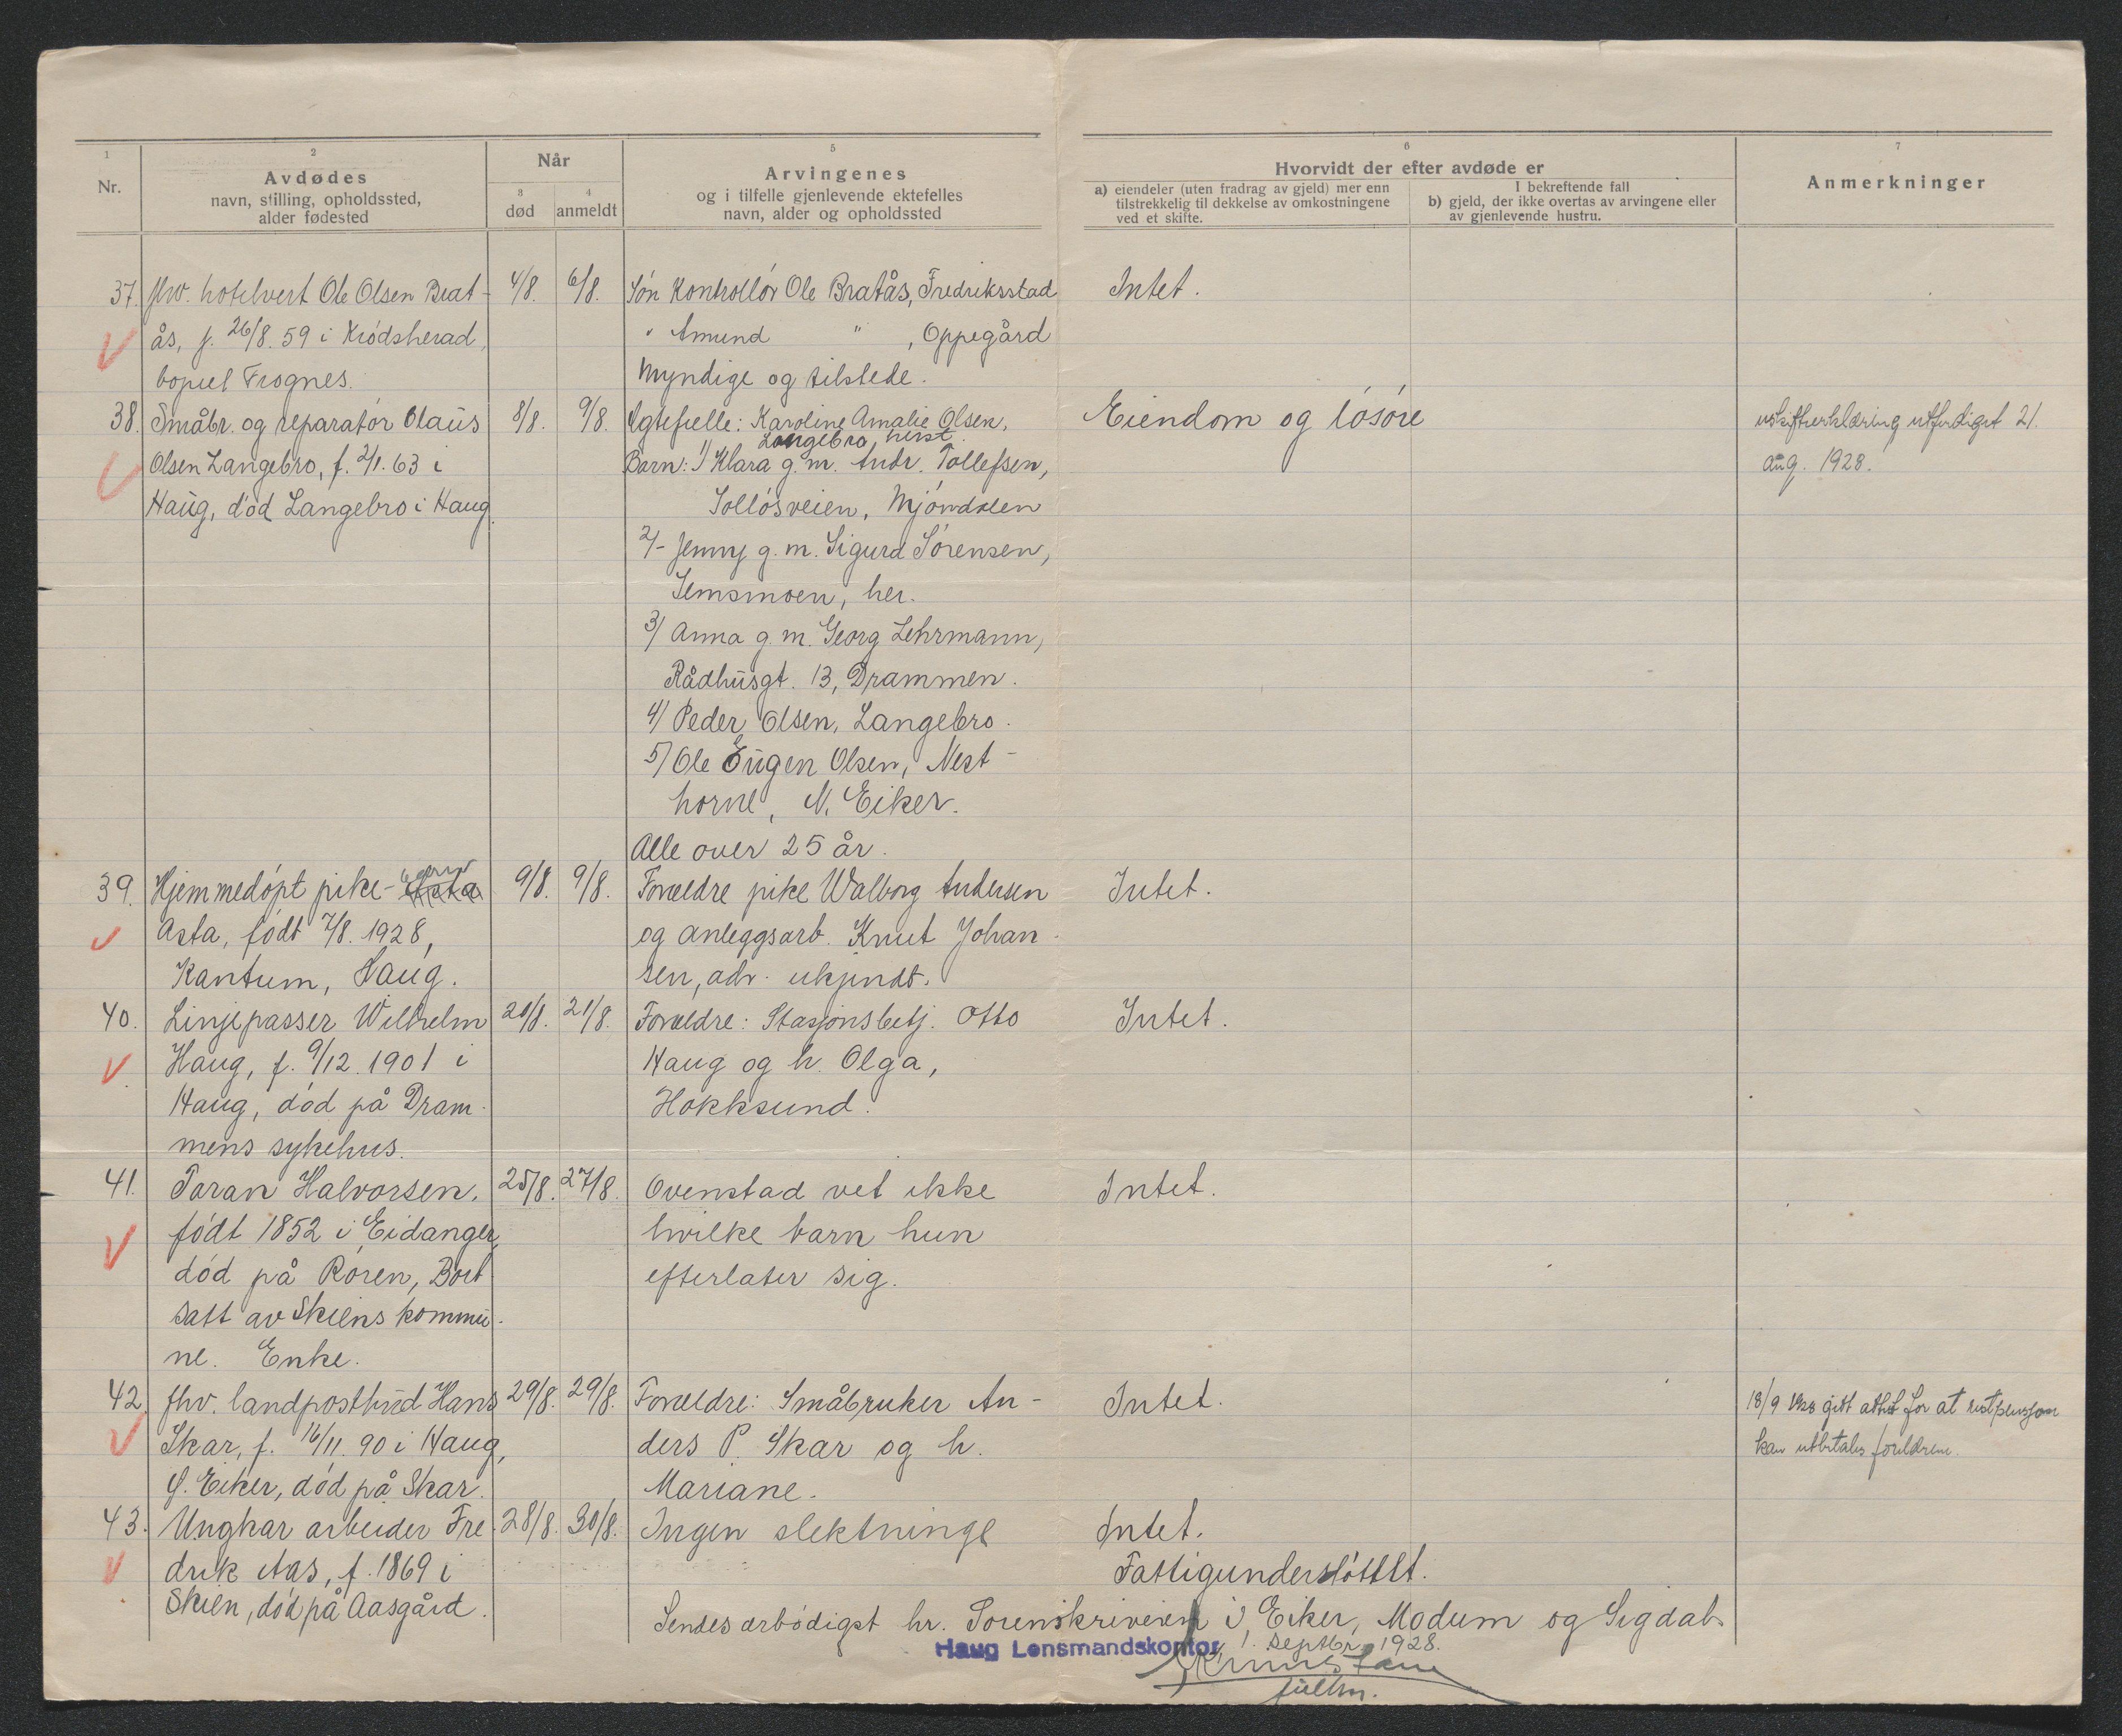 1
Nr.
2
Avdødes
navn, stilling, opholdssted,
alder fødested
Når
3
død
4
anmeldt
5
Arvingenes
og i tilfelle gjenlevende ektefelles
navn, alder og opholdssted
6
Hvorvidt der efter avdøde er
a) eiendeler (uten fradrag av gjeld) mer enn
tilstrekkelig til dekkelse av omkostningene
ved et skifte.
I bekreftende fall
b) gjeld, der ikke overtas av arvingene eller
av gjenlevende hustru.
7
Anmerkninger
37. fhv. hotelvert Ole Olsen Brat- 4/8. 6/8. Søn Kontrollør Ole Bratås, Fredriksstad Intet.
ås, f. 26/8. 59 i Krødsherad, " Amund " , Oppegård
bopæl Frognes. Myndige og tilstede.
38. Småbr. og reparatør Olaus 8/8. 9/8. Egtefelle: Karoline Amalie Olsen, Eiendom og løsøre
Langebro, herst.
Olsen Langebro, f. 2/1. 63 i Barn: 1/ Klara g. m. Andr. Tollefsen,
Haug, død Langebro i Haug. Solløsveien, Mjøndalen
uskifteerklæring utferdiget 21.
aug. 1928.
2/- Jenny g. m. Sigurd Sørensen,
Semsmoen, her.
3/ Anna g. m. Georg Lehrmann,
Rådhusgt. 13, Drammen.
4/ Peder Olsen, Langebro.
5/ Ole Eugen Olsen, Nest-
horne, N. Eiker.
Alle over 25 år.
39. Hjemmedøpt pike - 9/8. 9/8. Forældre pike Walborg Andersen Intet.
Asta, født 7/8. 1928, og anleggsarb. Knut Johan-
Kantum, Haug. sen, adr. ukjendt.
40. Linjepasser Wilhelm 20/8. 21/8. Forældre: Stasjonsbetj. Otto Intet.
Haug, f. 9/12. 1901 i Haug og h. Olga,
Haug, død på Dram- Hokksund.
mens sykehus.
41. Taran Halvorsen, 25/8. 27/8. Ovenstad vet ikke Intet.
født 1852 i Eidanger, hvilke barn hun
død på Røren, Bort efterlater sig.
satt av Skiens kommu-
ne. Enke.
42. fhv. landpostbud Hans 29/8. 29/8. Forældre: Småbruker An- Intet. 18/9 1928 gitt attest for at restpensjon
Skar, f. 16/11. 90 i Haug, ders P. Skar og h. kan utbetales foreldrene.
Ø. Eiker, død på Skar. Mariane.
43. Ungkar arbeider Fre- 28/8. 30/8. Ingen slektninge Intet.
drik Aas, f. 1869 i Fattigunderstøttet.
Skien, død på Aasgård.
Sendes ærbødigst hr. Sorenskriveren i Eiker, Modum og Sigdal.
Haug Lensmandskontor, 1. septbr. 1928.
fullm.